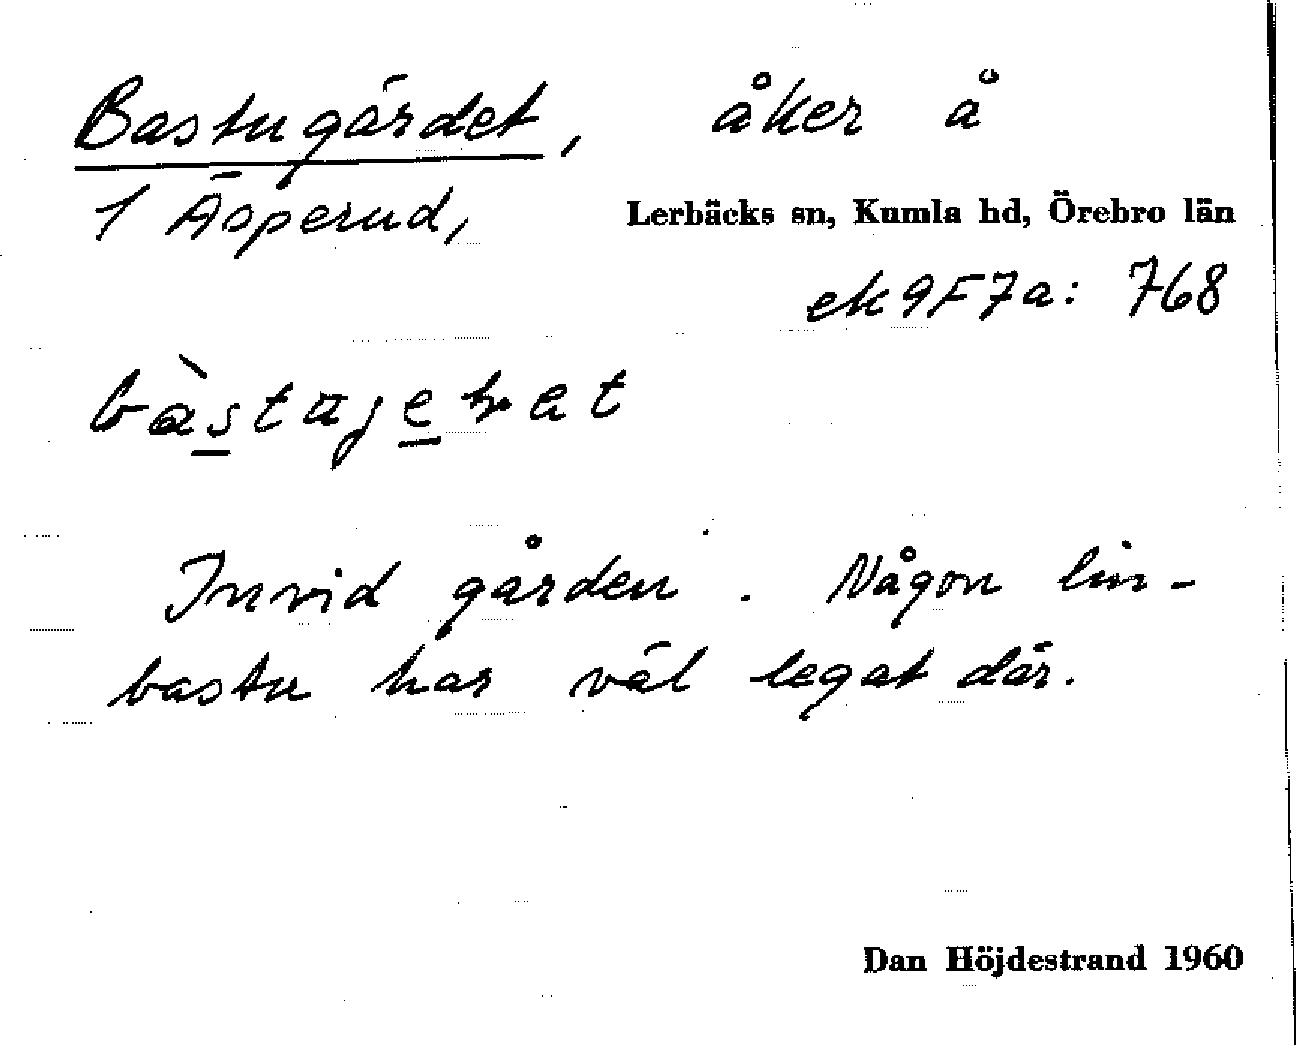 Bastugärdet, åker å
1 Äsperud, Lerbäcks sn, Kumla hd, Örebro län
ek 9F7a: 768
Invid gården. Någon lin-
bastu har väl legat där.
Dan Höjdestrand 1960